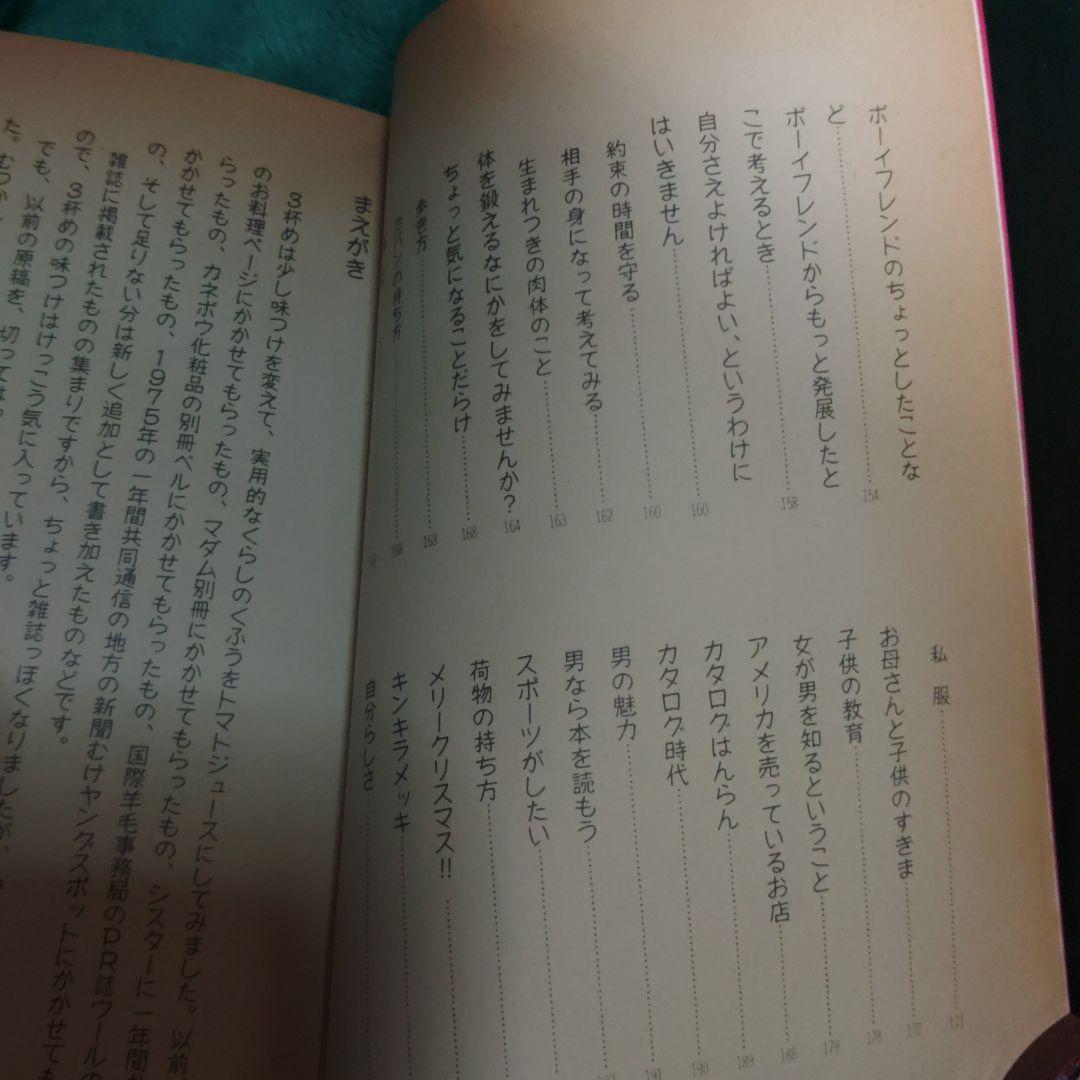 ボーイフレンドのちょっとしたことな
ど 154
ボーイフレンドからもっと発展したと
こで考えるとき 158
自分さえよければよい、というわけに 160
はいきません 160
約束の時間を守る 162
相手の身になって考えてみる
生まれつきの肉体のこと 163
体を鍛えるなにかをしてみませんか? 164
ちょっと気になることだらけ 168
歩き方 168
カバンの持ち方 168
私服 171
お母さんと子供のすきま 177
子供の教育 178
女が男を知るということ 179
アメリカを売っているお店 188
カタログはんらん 189
カタログ時代 190
男の魅力 191
男なら本を読もう
スポーツがしたい
荷物の持ち方
メリークリスマス!!
キンキラメッキ
自分らしさ
まえがき
3杯めは少し味つけを変えて、実用的なくらしのくふうをトマトジュースにしてみました。以前
のお料理ページにかかせてもらったもの、マダム別冊にかかせてもらったもの、シスターに一年間
らったもの、カネボウ化粧品の別冊ベルにかかせてもらったもの、国際羊毛事務局のPR誌ウールの
かかせてもらったもの、1975年の一年間共同通信の地方の新聞むけヤングスポットにかかせても
の、そして足りない分は新しく追加として書き加えたものなどです。
雑誌に掲載されたものの集まりですから、ちょっと雑誌っぽくなりましたが、
ので、3杯めの味つけはけっこう気に入っています。
でも、以前の原稿を、切っては
た。